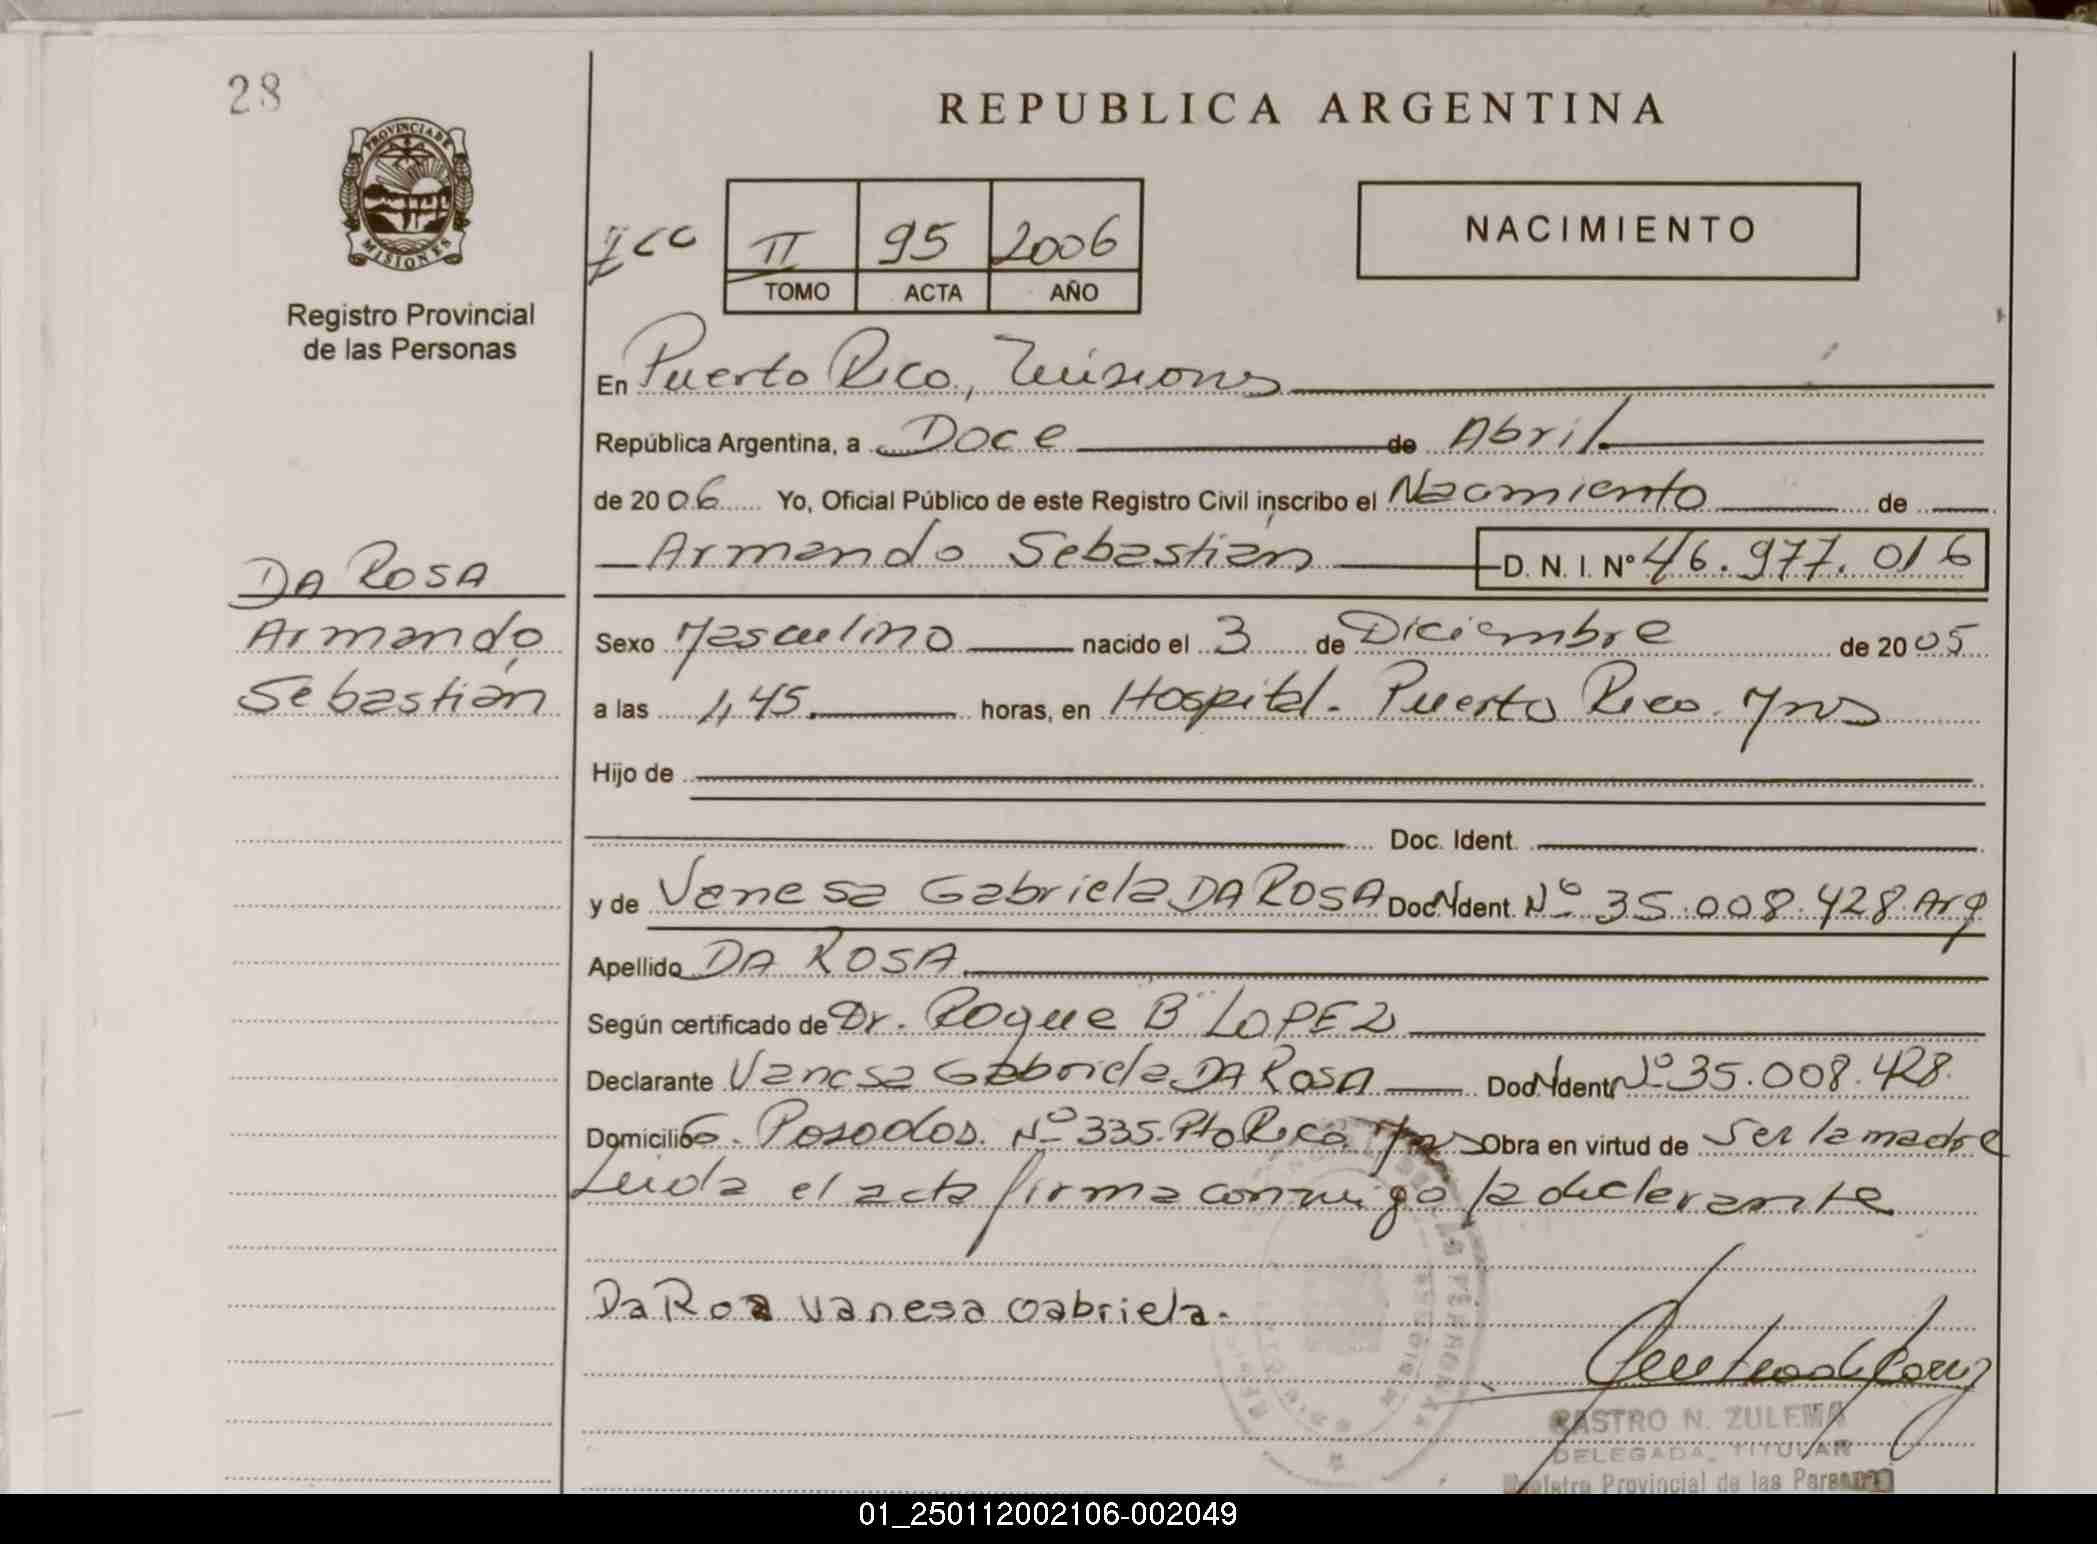 28
REPUBLICA ARGENTINA
PROVINCIA DE
MISIONES
Registro Provincial
de las Personas
II 95 2006
TOMO ACTA AÑO
NACIMIENTO
En Puerto Rico, Misiones
República Argentina, a Doce de Abril
de 2006 Yo, Oficial Público de este Registro Civil inscribo el Nacimiento de
Armando Sebastián D. N. I. Nº 46.977.016
DA ROSA
Armando
Sebastián
Sexo Masculino nacido el 3 de Diciembre de 2005
a las 1,45 horas, en Hospital - Puerto Rico Mns
Hijo de
Doc. Ident.
y de Vanesa Gabriela DA ROSA Doc. Ident. Nº 35.008.428 Arg
Apellido DA ROSA
Según certificado de Dr. Roque B LOPEZ
Declarante Vanesa Gabriela DA ROSA Doc. Ident. Nº 35.008.428
Domicilio G. Posadas Nº 335 Pto Rico Mns Obra en virtud de Ser la madre
Leida el acta firma conmigo la declarante
Da Roa Vanesa Gabriela.
CASTRO N. ZULEMA
DELEGADA TITULAR
Registro Provincial de las Personas
01_250112002106-002049